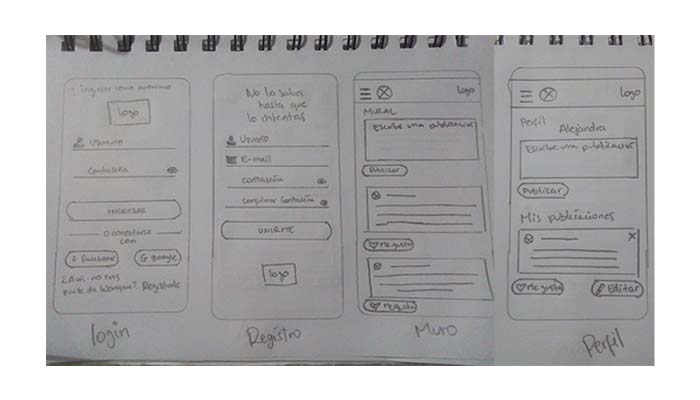 Ingresar como anonimo
logo
Usuario
Contraseña
INGRESAR
O conectarse
con
f facebook
G google
¿Aún no eres
parte de Regístrate
login
No lo sabes
hasta que
lo intentas
Usuario
E-mail
contraseña
Confirmar Contraseña
UNIRME
logo
Registro
logo
MURAL
Escribe una publicación
Publicar
Me gusta
Me gusta
Muro
logo
Perfil
Alejandra
Escribe una publicación
Publicar
Mis publicaciones
Me gusta
Editar
Perfil